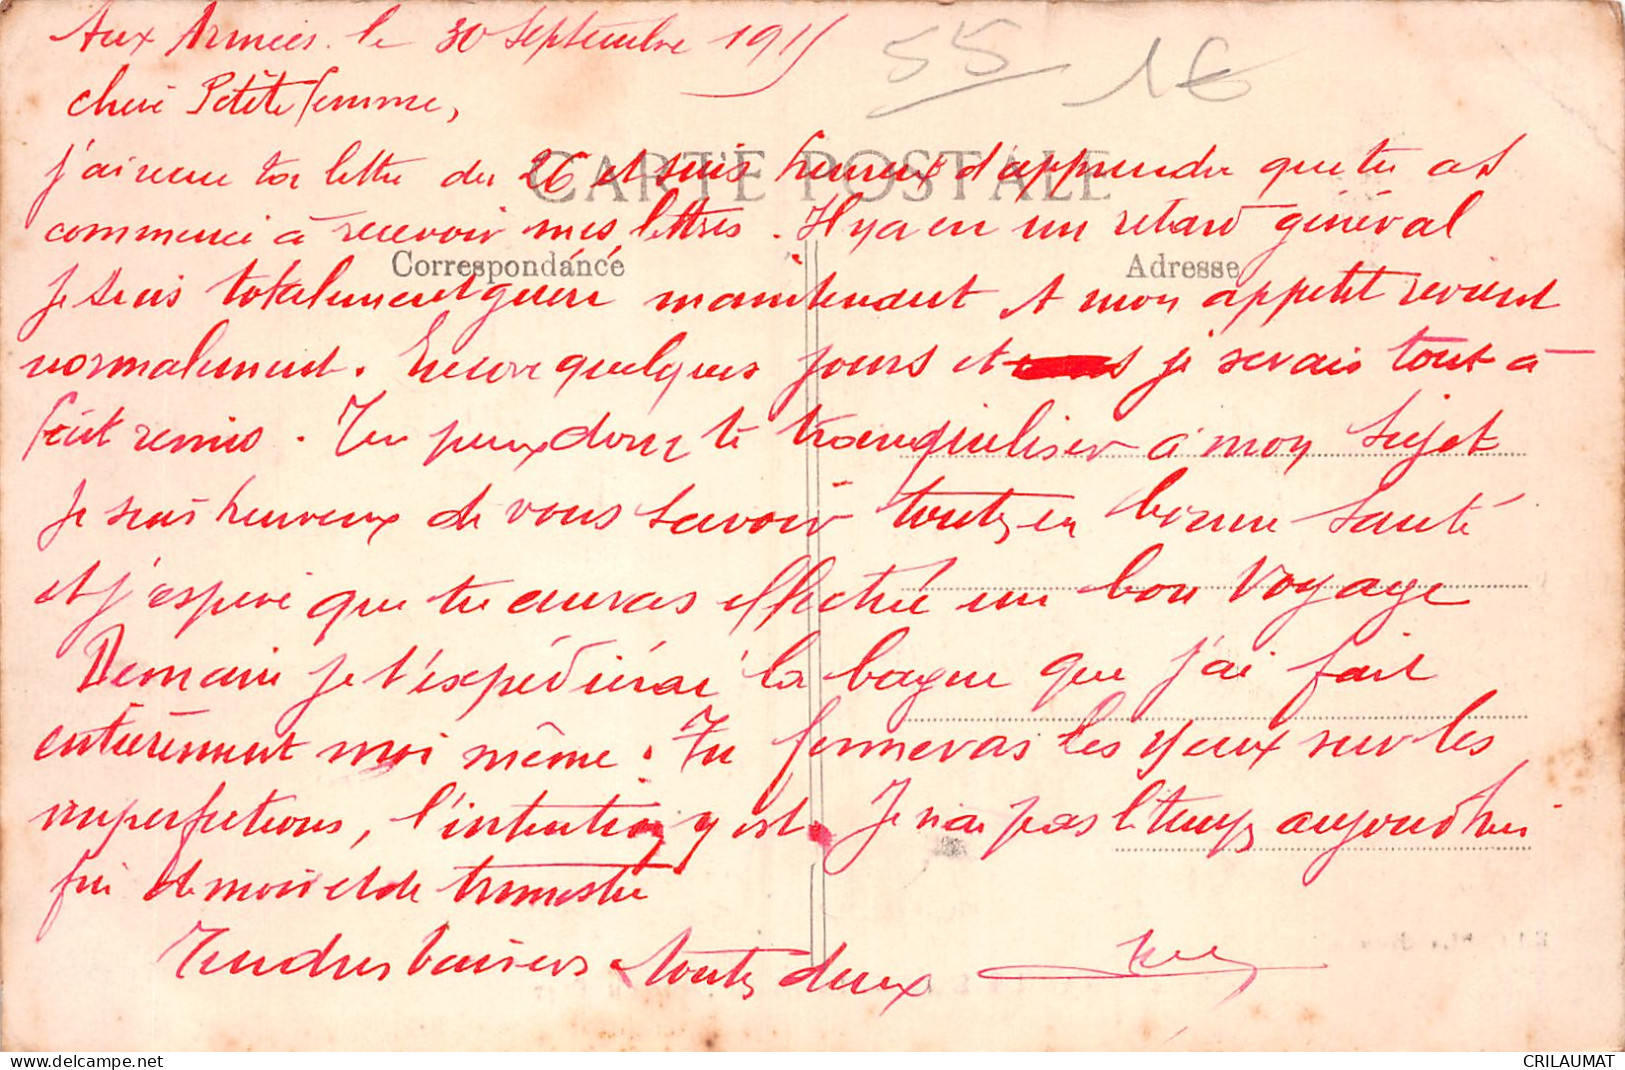 Aux Armées le 30 Septembre 1915
55 1€
chère Petite femme,
CARTE POSTALE
j'ai reçu ta lettre du 26 et suis heureux d'apprendre que tu as
commencé à recevoir mes lettres. Il y a eu un retard général
Correspondance
Adresse
Je suis totalement guéri maintenant et mon appétit revient
normalement. Encore quelques jours et je serais tout à
fait remis. Tu peux donc te tranquiliser à mon sujet
Je suis heureux de vous savoir toutes en bonne santé
et j'espère que tu auras effectué un bon voyage
Demain je t'expédierai la bague que j'ai fait
entièrement moi même. Tu fermeras les yeux sur les
imperfections, l'intention y est. Je n'ai pas le temps aujourd'hui
fin de mois et de trimestre
Tendres baisers toutes deux
delcampe.net
CRILAUMAT